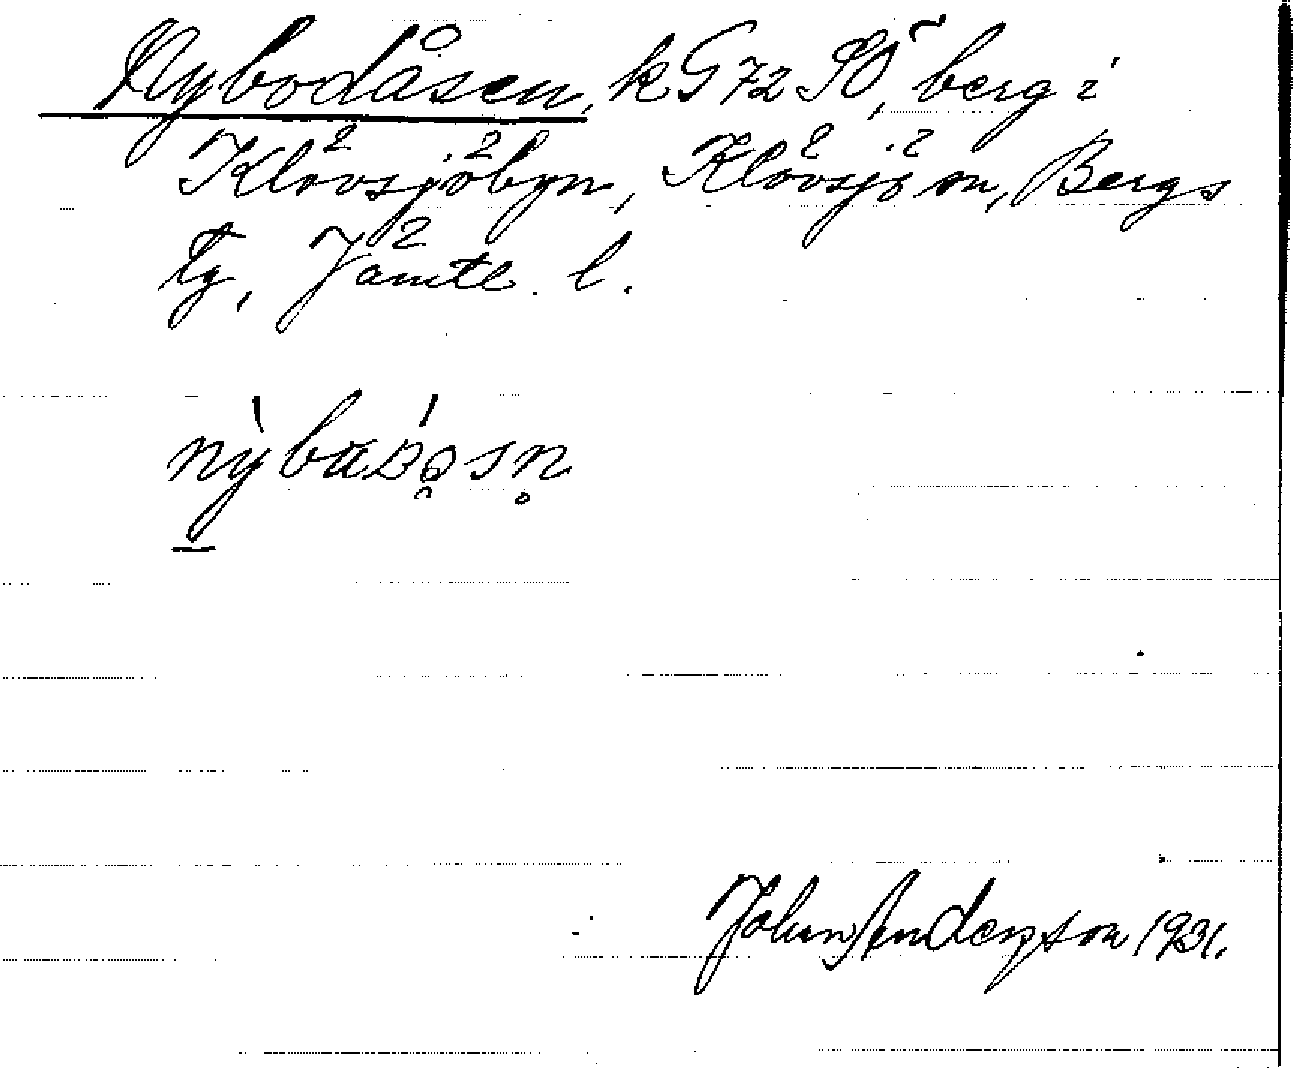 Nybodåsen, k G 72 SÖ, berg i
Klövsjöbyn, Klövsjö sn, Bergs
tg, Jämtl. l.
nỳbaƨó̯sn̥
John Anderzson 1931.